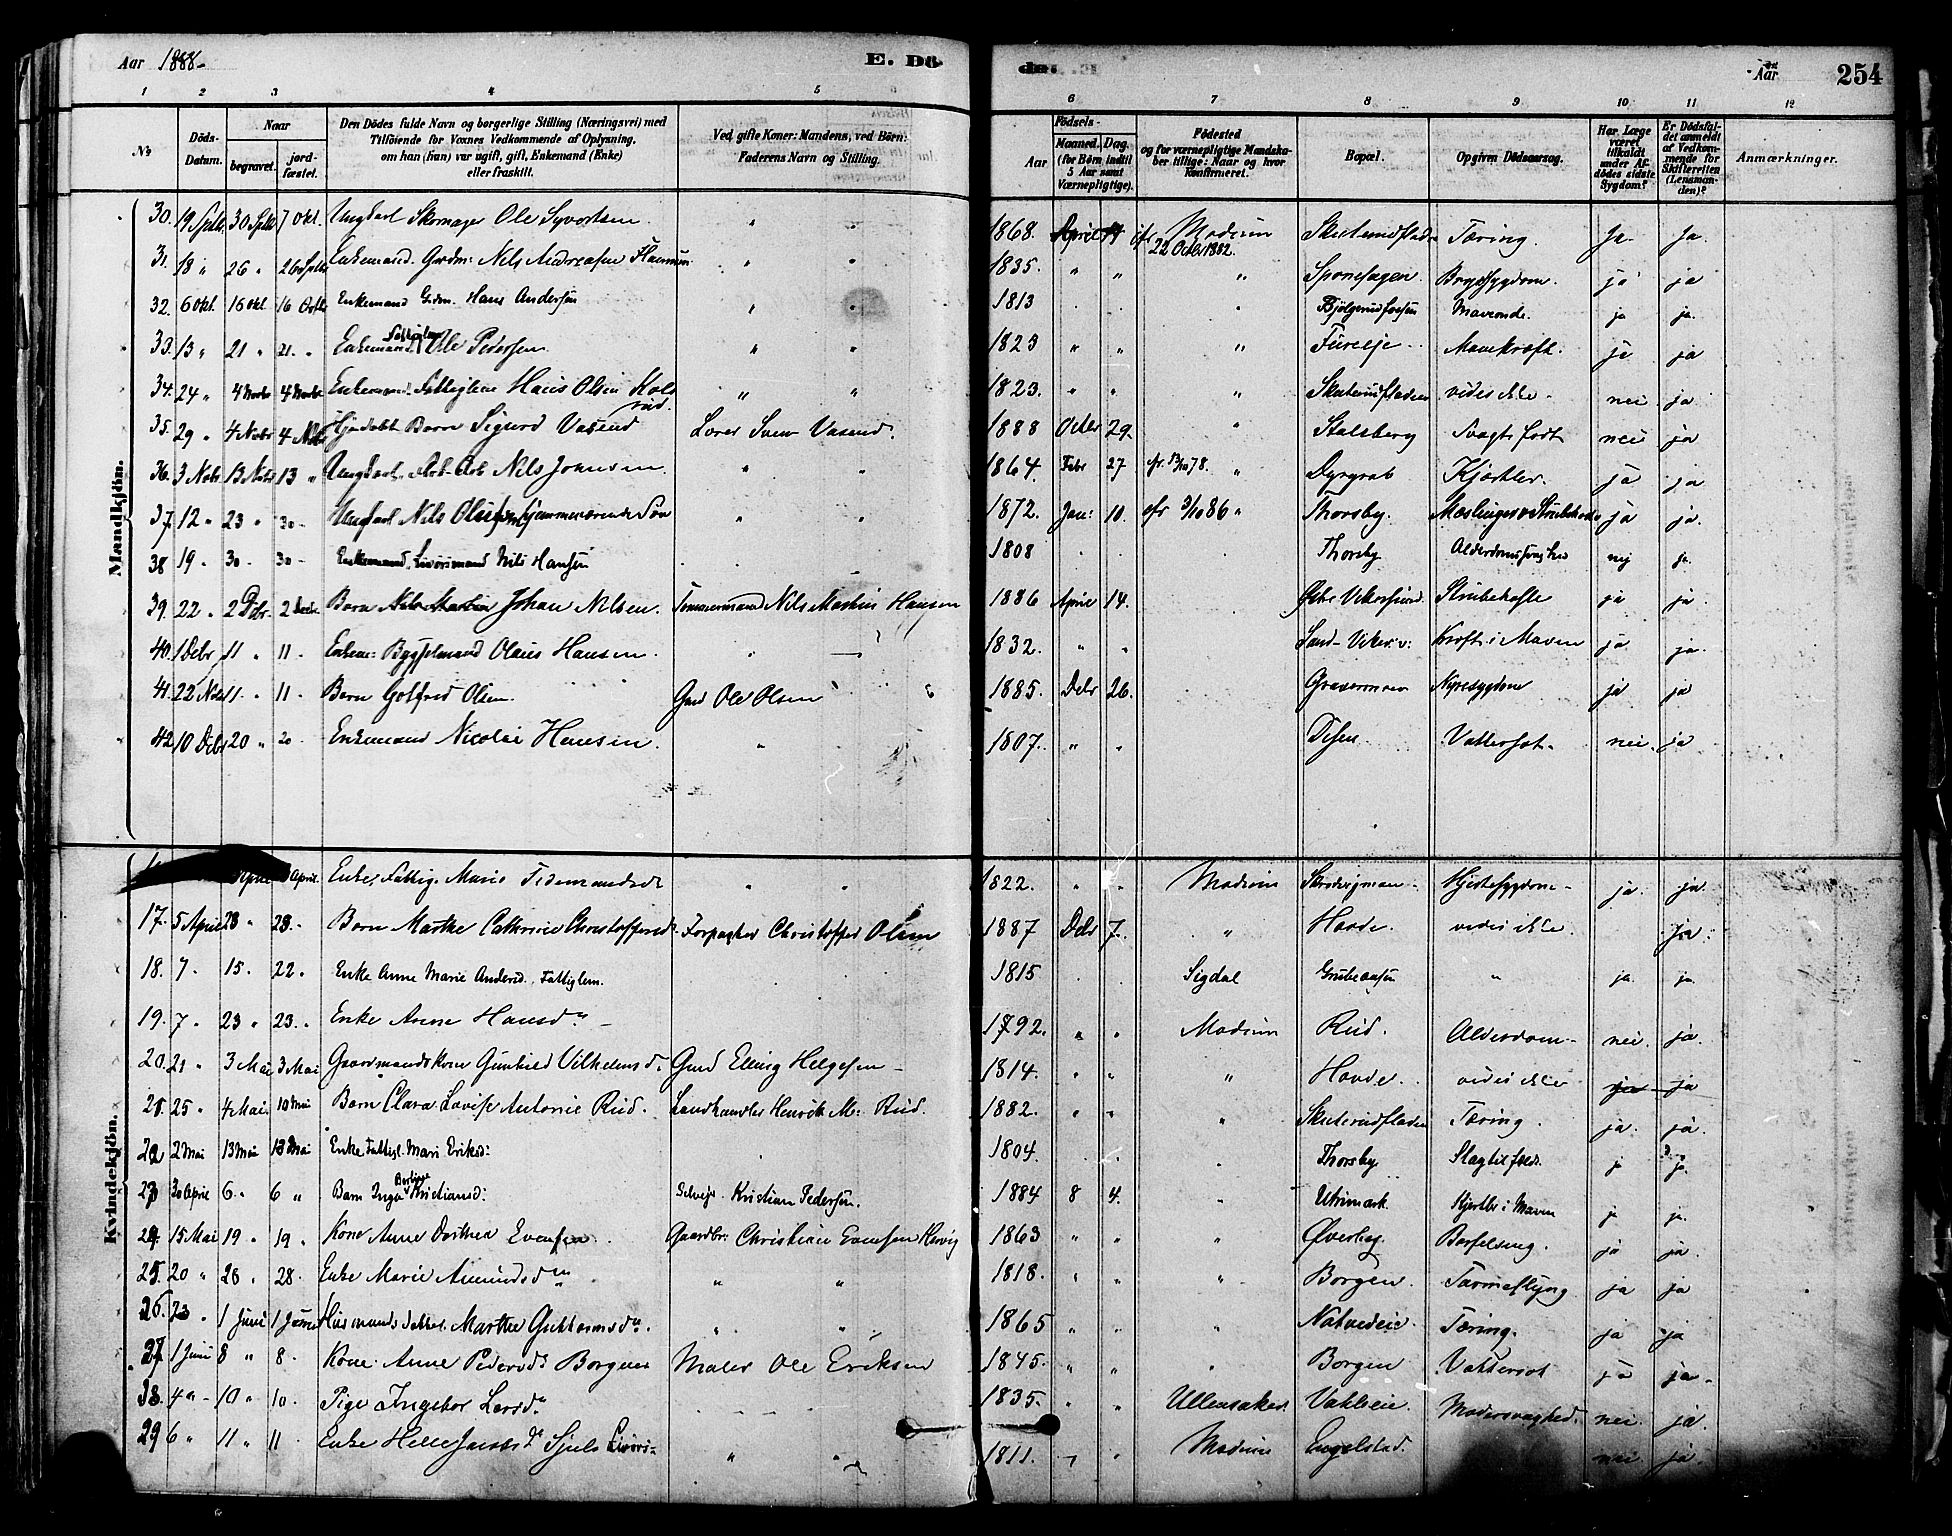 Aar 1888. E. Dö de. Aar 254
1 2 3 4 5 6 7 8 9 10 11 12
No Döds-Datum. Naar begravet. jord-fæstet. Den Dödes fulde Navn og borgerlige Stilling (Næringsvei) med Tilföiende for Voxnes Vedkommende af Oplysning, om han (hun) var ugift, gift, Enkemand (Enke) eller fraskilt. Ved gifte Koner: Mandens, ved Börn: Faderens Navn og Stilling. Födsels- Aar Maaned. (for Börn indtil 5 Aar samt Værnepligtige). Dag. Födested og for værnepligtige Mandska-ber tillige: Naar og hvor Konfirmeret. Bopæl. Opgiven Dödsaarsag. Har Læge været tilkaldt under Af-dödes sidste Sygdom? Er Dödsfal-det anmeldt af Vedkom-mende for Skifteretten (Lensman-den)? Anmærkninger.
Mandkjön.
30. 19 Septb. 30 Septb. 7 Okt. Ungkarl Skomager Ole Syvertsen 1868. April cfr 22 Octbr 1882. Modum Skuterudfladen Tæring. Ja. Ja.
31. 18 " 26 " 26 Septb. Enkemand Gdm: Nils Andreasen " " 1835. " " " Sponesagen Brystsygdom. ja ja
32. 6 Okt. 16 Okt. 16 Octbr Enkemand Gdm. Hans Andersen " " 1813 " Bjölgerudfossen Maveonde. ja ja.
33. 13 " 21 " 21. " Enkemand Fattiglem Ole Pedersen " " 1823 " " " Fureeje. Mavekræft. ja ja
34. 24 " 4 Novbr 4 Novbr Enkemand Fattiglem Hans Olsen Kolsrud. " " 1823. " " " Skuterudfladen vides ikke. nei ja
35. 29 " 4 Nobr 4 Nobr Hjemdøbt Barn Sigurd Vasend Lærer Sven Vasend. 1888 Octbr 29. " Stalsberg Svagt født nei ja
36. 3 Nobr 13 Nobr 13 " Ungkarl. Nils Johnsen. " " 1864. Febr 27 cfr. 13/10 78. " Dyrgrav Kjertler. ja ja
37 12 " 23 " 30 Ungkarl Nils Olsen hjemmeværende Søn " " 1872. Jan: 10. cfr 3/10 86 " Thorsby. Mæslinger & Strubehoste ja ja.
38 19 " 30 " 30 Enkemand. Livörsmand Nils Hansen 1808 Thorsby Alderdomssvaghed nej ja.
39. 22 " 2 Debr. 2 Decbr. Barn Johan Nilsen. Tømmermand Nils Martin Hansen 1886 April 14. Østre Vikersund. Strubehoste ja ja.
40. 1 Debr 11 " 11 " Enkem: Bygselmand Olaus Hansen. 1832. " " Kræft i Maven ja ja.
41. 22 Nobr 11. " 11 " Barn Gotfred Olsen. Gmd Ole Olsen 1885. Debr 26. Nyresygdom ja ja
42 10 Debr 20 " 20 " Enkemand Nicolai Hansen. " 1807. " " Disen Vattersot. nei. ja
Kvindekjön.
April April. Enke, Fattigl. Marie Tidemandsdr " " 1822. " " Modum Hjertesygdom. ja. ja.
17. 5 April 28 " 28. " Barn Marthe Cathrine Christoffersdr. Forpagter Christoffer Olsen 1887 Debr 7. " Hovde. vides ikke. ja.
18. 7. 15. " 22. " Enke Anne Marie Andersd. Fattiglem. 1815 Sigdal " ja ja.
19. 7 " 23 " 23. " Enke Anne Hansdr 1792. " " Modum Rud. Alderdom. nei. ja.
20. 21 " 3 Mai 3 Mai Gaardmandskone Gunhild Vilhelmsd. Gmd Elling Helgesen 1814. " " " Hovde. vides ikke ja ja
21. 25 " 4 Mai. 10 Mai Barn Clara Lovise Antonie Rud. Landhandler Henrik M: Rud. 1882. " " " Skuterudfladen Tæring. ja. ja.
22 2 Mai 13 Mai 13 Mai Enke Fattigl. Mari Eriksd: 1804. " Thorsby Slagtilfælde. ja ja.
23 30 April 6. " 6 " Barn Inga Bertine Kristiansd: Selvejr. Kristian Pedersen. 1884 8 4. " Utrimark. Kjertler i Maven ja ja.
24. 15 Mai 19 " 19 " Kone Anne Dorthea Evensen Gaardbr: Christian Evensen 1863 " " " Øverby. Barselseng. ja ja.
25. 20 " 28 " 28. Enke Marie Amundsdr " " 1818. " " " Borgen. Tarmeslyng ja ja
26. 23 " 1 Juni 1 Juni Husmandsdatter. Marthe Guttormsdr. " " 1865 " " " Natvedeie. Tæring. ja ja
27. 1 Juni 8 " 8. Kone Anne Pedersd. Borgen Maler Ole Eriksen 1845. " " " Borgen Vattersot ja ja.
28. 4 " 10 " 10. Pige Ingebor Larsdr 1835. " " Ullensaker. Modersvaghed. nei. ja.
29 6 " 11 " 11 Enke Helle Jacobsdr " " 1811. " " Modum Engelstad. nei ja.